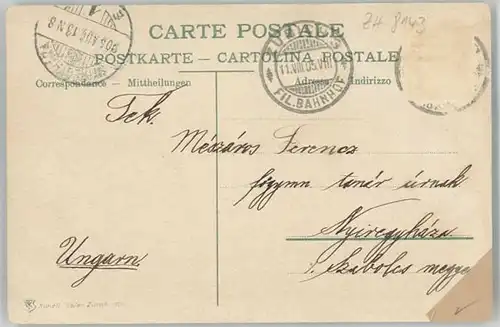 24 8143
CARTE POSTALE
POSTKARTE – CARTOLINA POSTALE
Correspondance - Mittheilungen
Adresse - Indirizzo
11.VIII.05.VIII
FIL. BAHNHOF
905 AUG 13 N 8
Tek.
Mészáros Ferencz
főgymn tanár úrnak
Nyiregyháza
Szabolcs megye
Ungarn